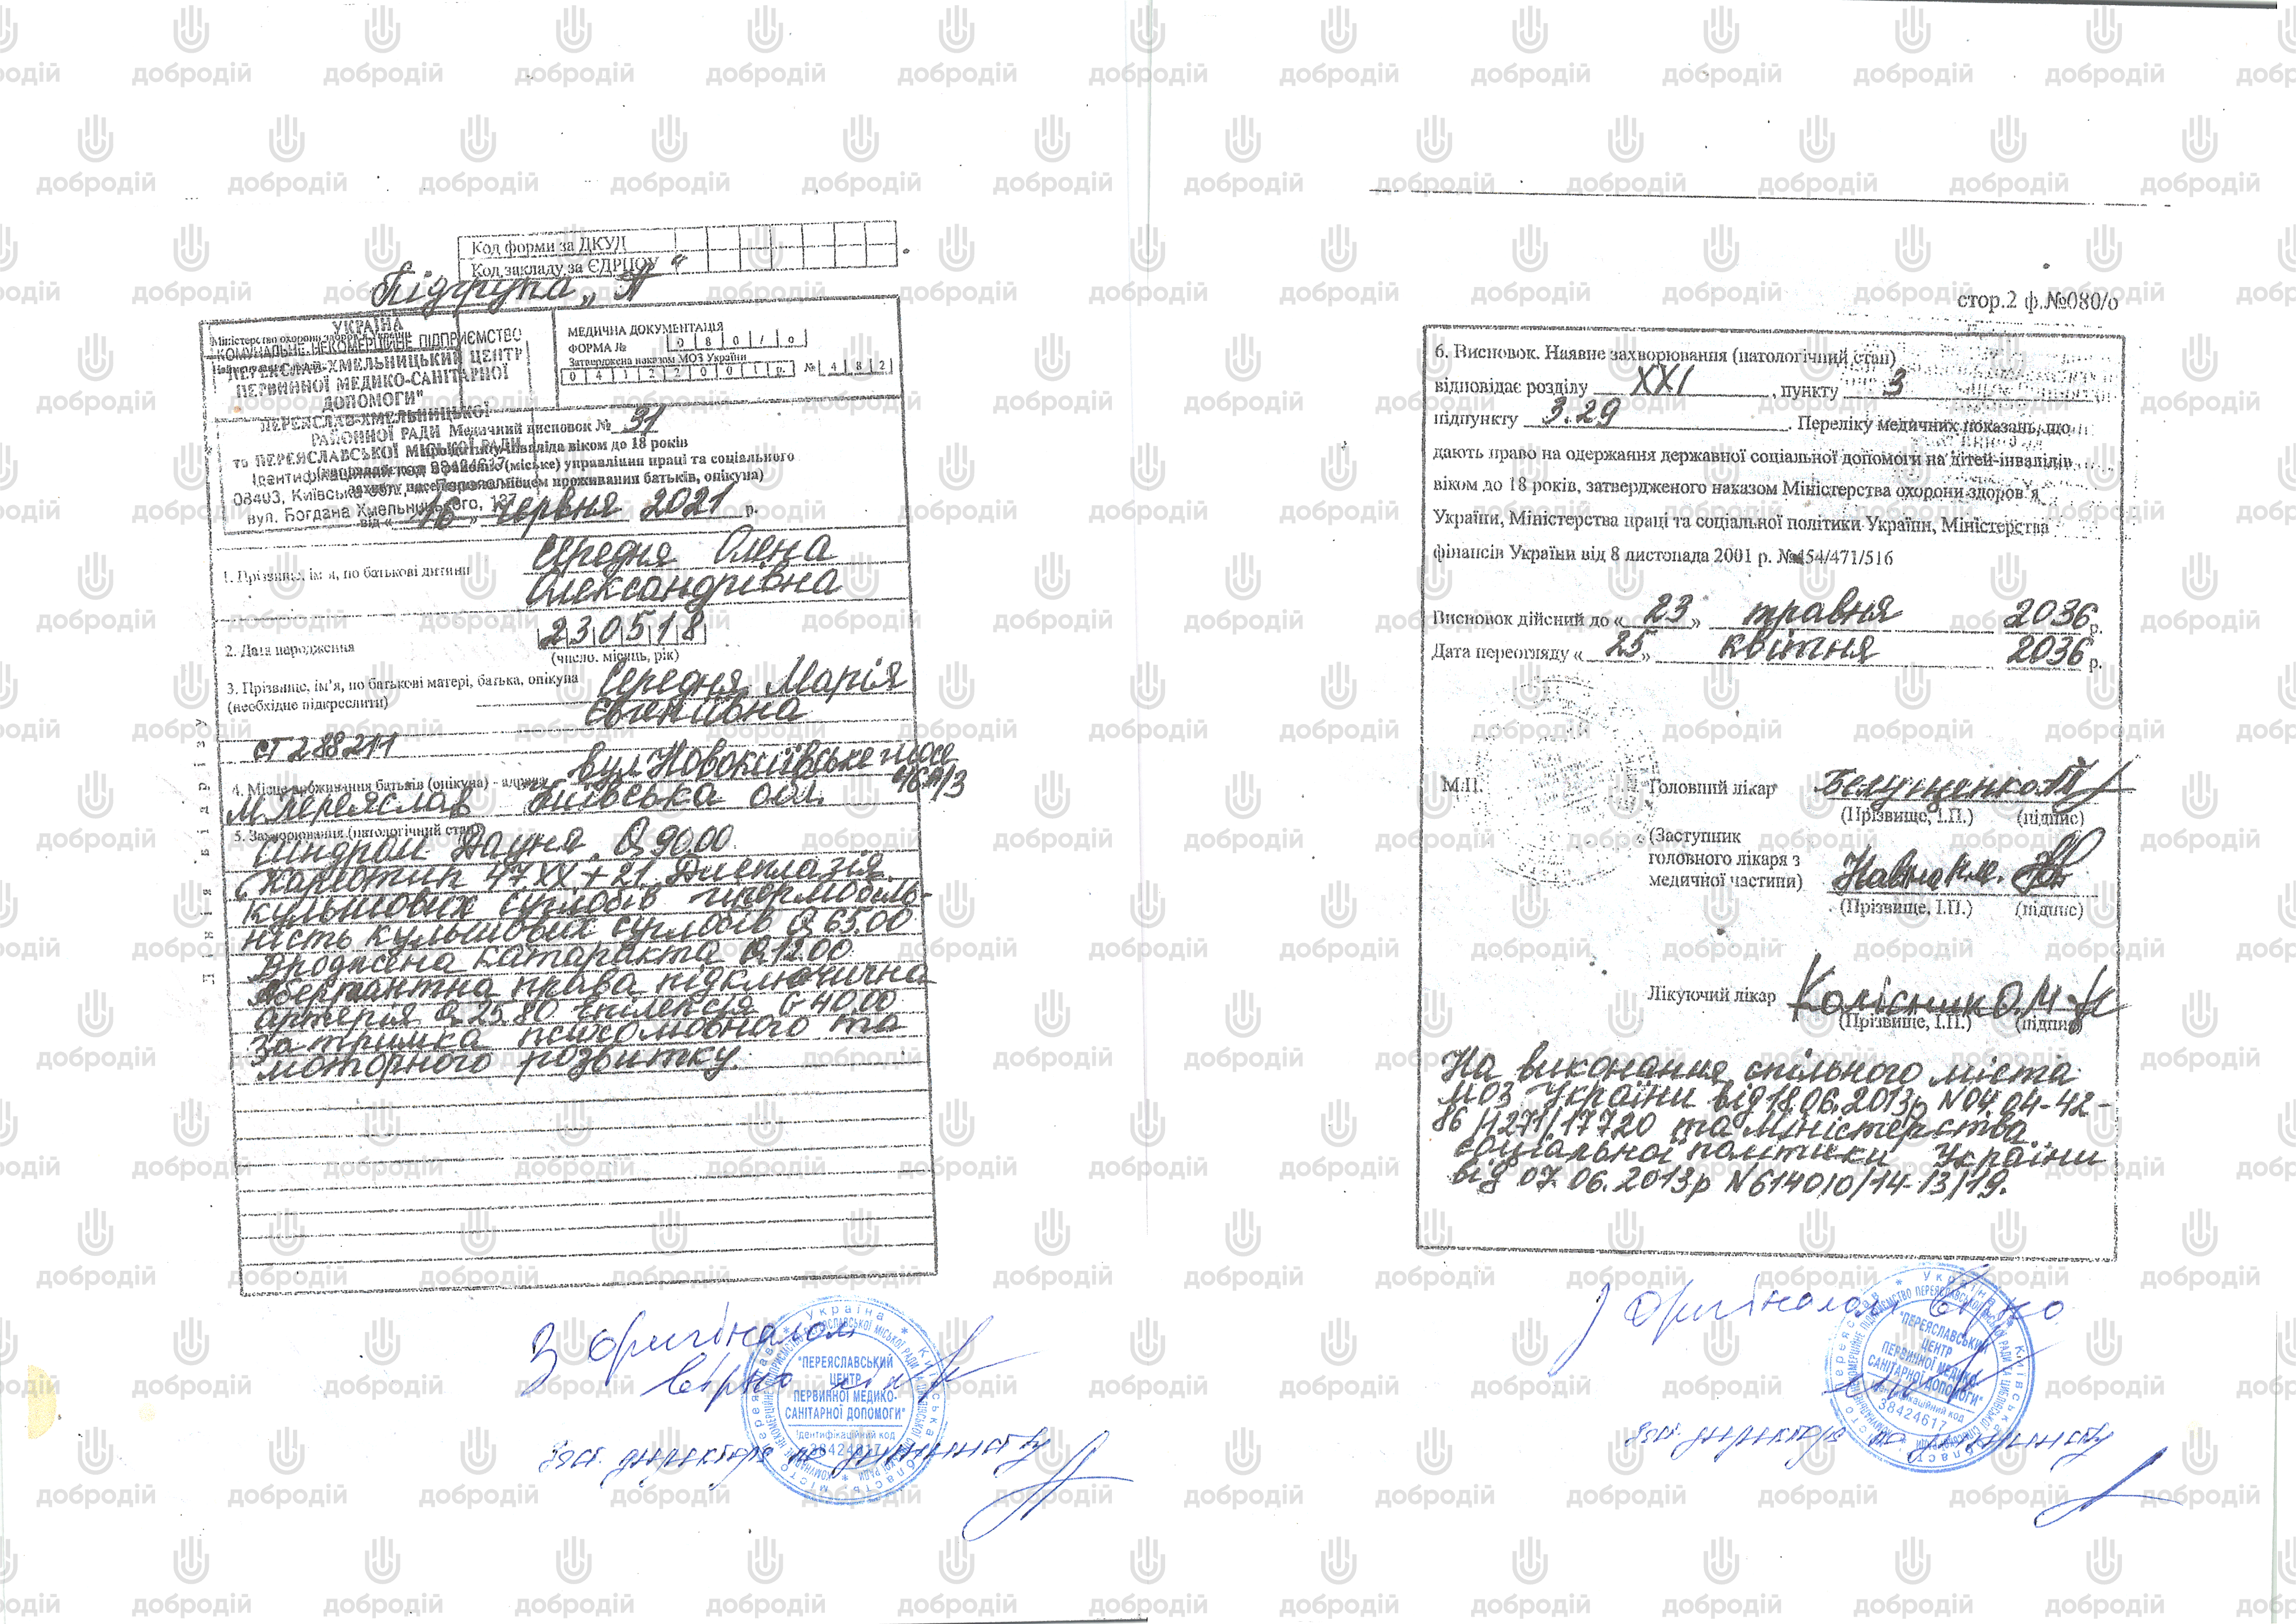 Код форми за ДКУД
Код закладу за ЄДРПОУ
Підгрупа „А"
УКРАЇНА
Міністерство охорони здоров'я України
КОМУНАЛЬНЕ НЕКОМЕРЦІЙНЕ ПІДПРИЄМСТВО
"ПЕРЕЯСЛАВ-ХМЕЛЬНИЦЬКИЙ ЦЕНТР
ПЕРВИННОЇ МЕДИКО-САНІТАРНОЇ
ДОПОМОГИ"
ПЕРЕЯСЛАВ-ХМЕЛЬНИЦЬКОЇ
РАЙОННОЇ РАДИ
та ПЕРЕЯСЛАВСЬКОЇ МІСЬКОЇ РАДИ
Ідентифікаційний код 38424617
08403, Київська обл., м. Переяслав
вул. Богдана Хмельницького, 137
МЕДИЧНА ДОКУМЕНТАЦІЯ
ФОРМА № 080/о
Затверджена наказом МОЗ України
04122001р. №482
Медичний висновок № 31
про дитину-інваліда віком до 18 років
(міське) управління праці та соціального
захисту населення за місцем проживання батьків, опікуна)
від « 16 » червня 2021 р.
1. Прізвище, ім'я, по батькові дитини Середня Олена
Олександрівна
2. Дата народження 230518
(число, місяць, рік)
3. Прізвище, ім'я, по батькові матері, батька, опікуна Середня Марія
(необхідне підкреслити) Євгеніївна
СТ 288211
4. Місце проживання батьків (опікуна) - адреса вул Новокиївське шосе
м. Переяслав Київська обл.
5. Захворювання (патологічний стан)
Синдром Дауна Q 90.00.
(Каріотип 47XX+21. Дисплазія
кульшових суглобів гіпермобіль-
ність кульшових суглобів Q 65.00
Вроджена катаракта Q 12.00
Аберрантна права підключична
артерія Q 25.80 Епілепсія G 40.00
Затримка психомовного та
моторного розвитку.
Лінія відрізу
З оригіналом
вірно
Заст. директора по дитинству
* Україна * Київська область * місто Переяслав
"ПЕРЕЯСЛАВСЬКИЙ
ЦЕНТР
ПЕРВИННОЇ МЕДИКО-
САНІТАРНОЇ ДОПОМОГИ"
Ідентифікаційний код
38424617
стор.2 ф.№080/о
6. Висновок. Наявне захворювання (патологічний стан)
відповідає розділу XXI , пункту 3
підпункту 3.29 . Переліку медичних показань, що
дають право на одержання державної соціальної допомоги на дітей-інвалідів
віком до 18 років, затвердженого наказом Міністерства охорони здоров'я
України, Міністерства праці та соціальної політики України, Міністерства
фінансів України від 8 листопада 2001 р. №454/471/516
Висновок дійсний до « 23 » травня 2036 р.
Дата переогляду « 25 » квітня 2036 р.
М.П.
Головний лікар
(Прізвище, І.П.) (підпис)
(Заступник
головного лікаря з
медичної частини)
(Прізвище, І.П.) (підпис)
Лікуючий лікар Колісник О.М.
(Прізвище, І.П.) (підпис)
На виконання спільного міста
МОЗ України від 18.06.2013р N04.04-42-
86/1271/17720 та Міністерства
соціальної політики України
від 07.06.2013р N6140/0/14-13/19.
З оригіналом вірно
Заст. директора по дитинству
"ПЕРЕЯСЛАВСЬКИЙ
ЦЕНТР
ПЕРВИННОЇ МЕДИКО-
САНІТАРНОЇ ДОПОМОГИ"
Ідентифікаційний код
38424617
добродій